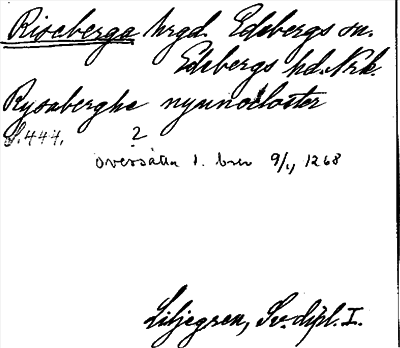 Riseberga hrgd. Edsbergs sn.
Edsbergs hd. Nrk.
Rysaberghe nynnocloster
S. 444. 2
översättn i. brev 9/1 1268
Liljegren, Sv. dipl. I.